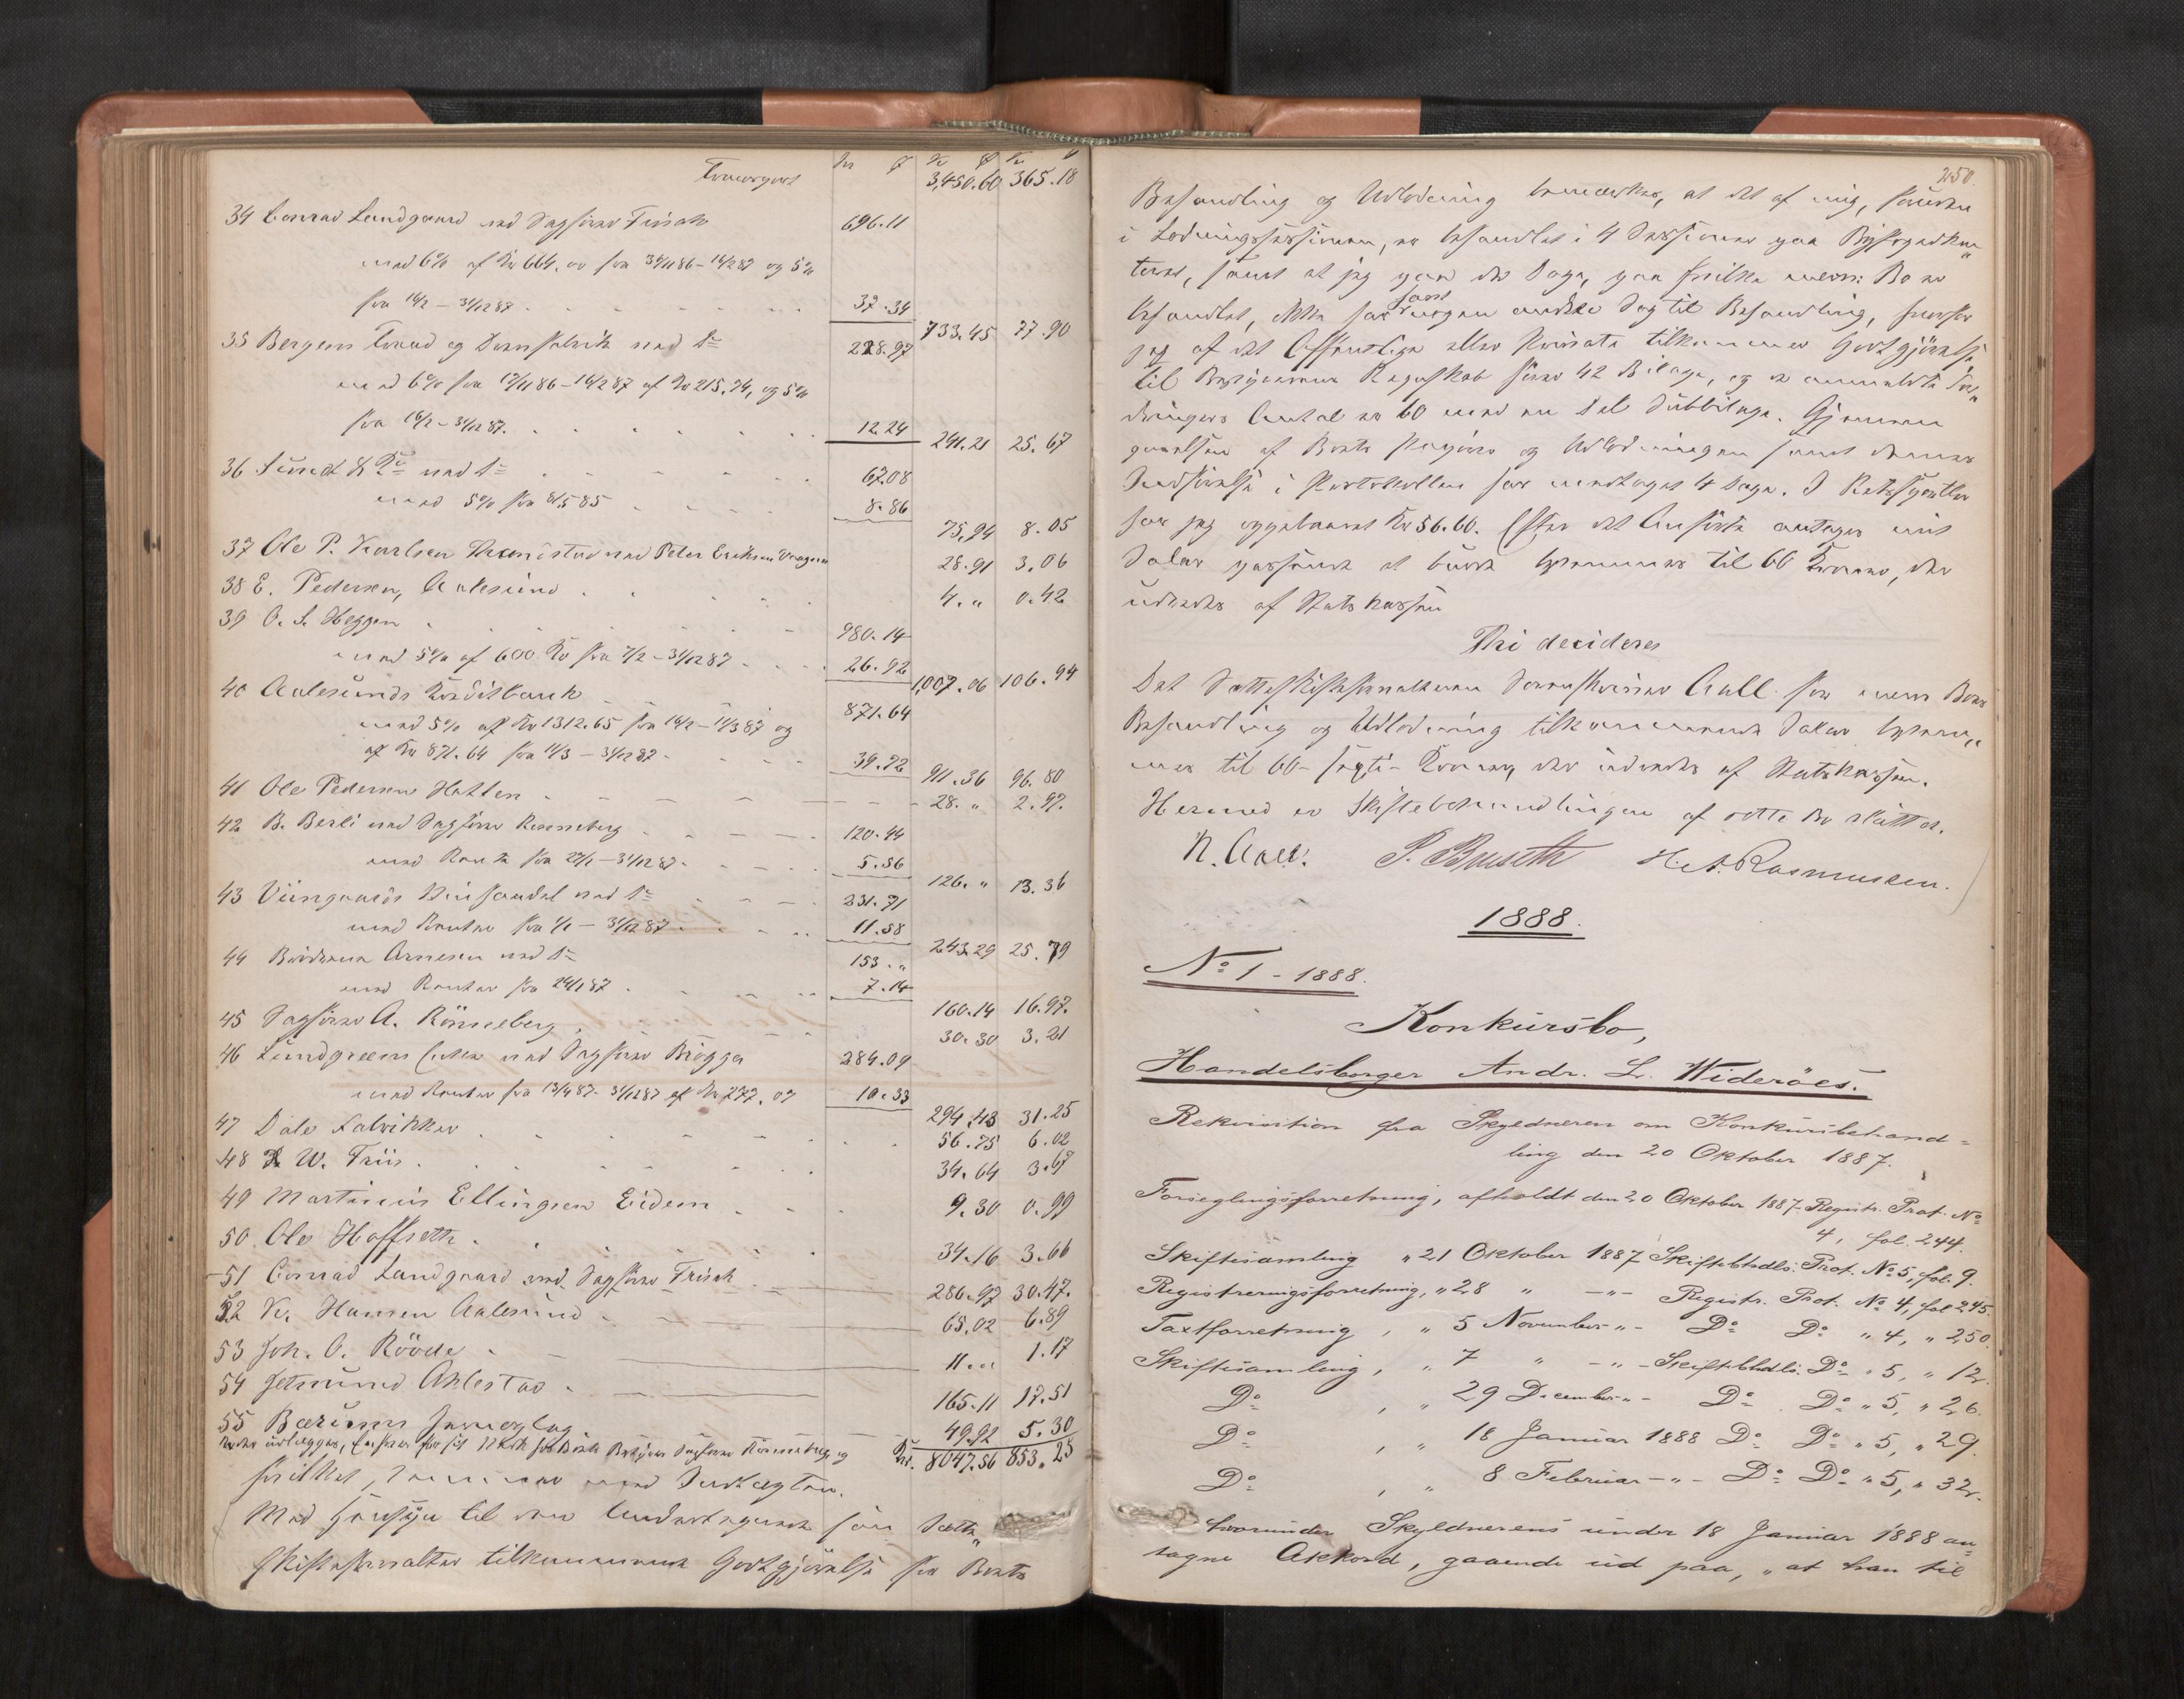 Transport
Kr ø Kr ø Kr ø
3,450.60 365.18
34 Conrad Lundgaard ved Sagfører Frisch 696.11
med 6% af Kr 664.00 fra 30/11 86 – 16/2 87 og 5%
fra 16/2 – 31/12 87 37.34
733.45 77.90
35 Bergens ved Do 228.97
med 6% fra 17/11 86 – 16/2 87 af Kr 215.74, og 5%
fra 16/2 – 31/12 87. 12.24
241.21 25.67
36 Sundt & Co ved Do 67.08
med 5% fra 8/5 85 8.86
75.94 8.05
37 Ole P. Karlsen ved Peter Eriksen 28.91 3.06
38 E. Pedersen, Aalesund 4. „ 0.42
39 O. S. Heggen 980.14
med 5% af 600 Kr fra 7/2 – 31/12 87 26.92
1,007.06 106.94
40 Aalesunds Kreditbank 871.64
med 5% af Kr 1312.65 fra 16/2 – 11/3 87 og
af Kr 871.64 fra 11/3 – 31/12 87 39.72
911.36 96.80
41 Ole Pedersen Hatlen 28. „ 2.97.
42 B. Berli ved Sagfører Rønneberg 120.44
med Renter fra 27/1 – 31/12 87 5.56
126. „ 13.36
43 Viingaards Viinhandel ved Do 231.71
med Renter fra 1/1 – 31/12 87 11.58
243.29 25.79
44 Brødrene Arnesen ved Do 153. „
med Renter fra 24/1 87 7.14
160.14 16.97.
45 Sagfører A. Rönneberg 30.30 3.21
46 Lundgreens Enke ved Sagfører Brögger 284.09
med Renter fra 13/4 87 – 31/12 87 af Kr 272.07 10.33
294.43 31.25
47 Dale Fabrikker 56.75 6.02
48 W. Friis 34.64 3.67
49 Martinus Ellingsen Eidem 9.30 0.99
50 Ole Hoffseth 34.16 3.66
51 Conrad Lundgaard ved Sagfører Frisch 286.97 30.47.
52 Kr. Hansen Aalesund 65.02 6.89
53 Joh. O. Rööde 11. „ 1.17
54 Jetmund Ahlestad 165.11 17.51
55 Bærums Jernverk 49.92 5.30
Kr. 8047.56 853.25
hvilket, stemmer med Indtægten.
Med Hensyn til den Undertegnede som Sætte„
skifteforvalter tilkommende Godtgjørelse for Boets
250.
Behandling og Udlodning bemærkes, at det af mig, foruden
i Lodningssessionen, er behandlet i 4 Sessioner paa Byfogedkon„
toret, samt at jeg paa de Dage, paa hvilke nævnte Bo er
behandlet, ikke har havt nogen anden Sag til Behandling, hvorfor
jeg af det Offentlige eller Private tilkommer Godtgjørelse
til Bestyrerens Regnskab hører 42 Bilage, og de anmeldte For„
dringers Antal er 60 med en Del Subbilage. Gjennem„
gaaelsen af Boets Papirer og Udlodningen samt dennes
Indførelse i Protokollen har medtaget 4 Dage. I Retsgebyr
har jeg oppebaaret Kr 56.60. Efter det Anførte antages mit
Salær passende at burde bestemmes til 60 Kroner, der
udredes af Statskassen
Thi decideres
Det Sætteskifteforvalteren Sorenskriver Aall for nævnte Boes
Behandling og Udlodning tilkommende Salær bestem„
mes til 60 – sexti – Kroner, der udredes af Statskassen.
Hermed er Skiftebehandlingen af dette Bo sluttet.
N. Aall. P. Buseth H. A. Rasmussen.
1888.
No 1 – 1888.
Konkursbo,
Handelsborger Andr. L. Wideröes.
Rekvisition fra Skyldneren om Konkursbehand=
ling den 20 Oktober 1887.
Forseglingsforretning, afholdt den 20 Oktober 1887 Registr. Prot. No
4, fol. 244.
Skiftesamling „ 21 Oktober 1887 Skiftebhdls. Prot. No 5, fol. 9.
Registreringsforretning, „ 28 „ – „ – Registr. Prot. No 4, fol 245.
Taxtforretning, „ 5 November – „ – Do Do „ 4, „ 250.
Skiftesamling, „ 7 „ – „ – Skiftebhdls. Do „ 5, „ 12.
Do, „ 29 December – „ – Do Do „ 5, „ 26.
Do, „ 18 Januar 1888 Do Do „ 5, „ 29.
Do, „ 8 Februar – „ – Do Do „ 5, „ 32.
hvorunder Skyldnerens under 18 Januar 1888 an=
tagne Akkord, gaaende ud paa, „at han til